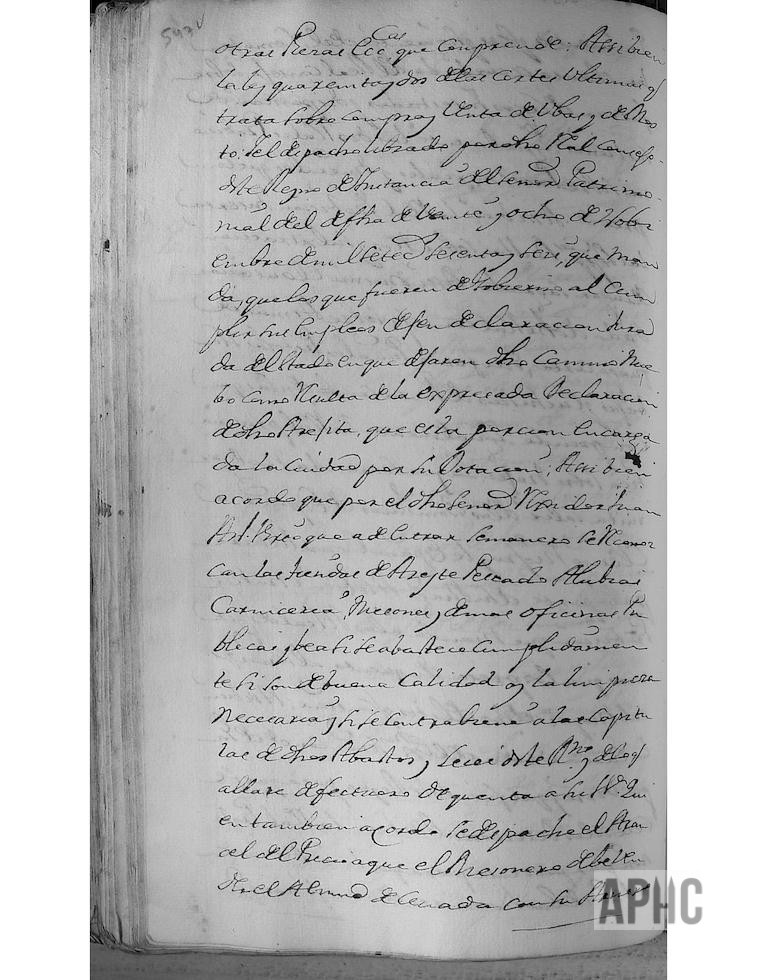 547v
otras Pieras Ecc.cas que Comprende: Assi bien
la ley quarenta y dos de las Cortes Ultimas q
trata sobre Compra y Venta de Ubas y de Mos
to; el despacho librado por dho Real Consejo
deste Reyno de Instancia del Señor Patrimo
nial del de fha de Veinte y ocho de Nobi
embre de mil setec.s sesenta y seis, que man
da, que los que fueren de Gobierno al Cum
plir sus empleos desen declaracion Jura
da del estado en que dejaren dho Camino Nue
bo como resulta de la expresada Declaracion
de dho que es la porcion encarga
da la Ciudad por su Dotacion; Assi bien
acordo que por el dho Señor Regidor Juan
que a de entrar semanero se reconoz
can las tiendas de Azeyte Pescado Alubias
Carniceria, Mesones y demas oficinas Pu
blicas y bea si se abastece Cumplidamen
te si son de buena Calidad y la limpieza
Necesaria y si se contrabiene a las Capitu
las de dhos Abastos y Leies deste R.no y de lo q
allare defectuoso de quenta a su S.ª Qui
en tambien acordo se despache el Aran
cel del Precio a que el Mesonero debe Ven
der el Almud de Cevada con su
APHC